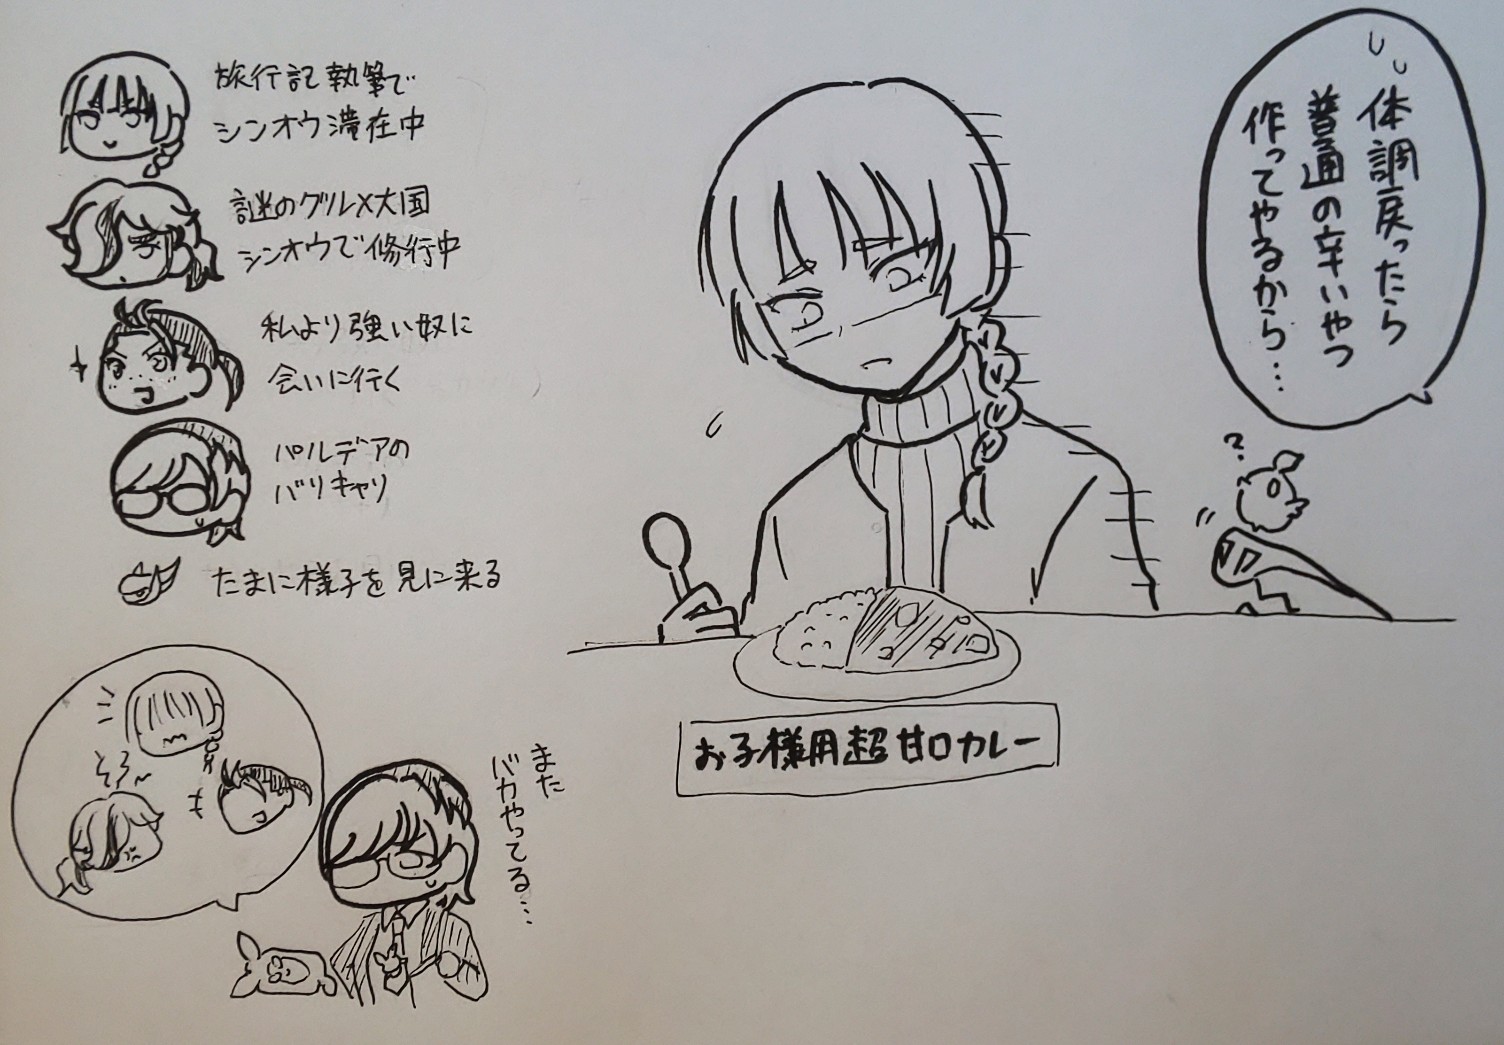 旅行記執筆で
シンオウ滞在中
謎のグルメ大国
シンオウで修行中
私より強い奴に
会いに行く
パルデアの
バリキャリ
たまに様子を見に来る
体調戻ったら
普通の辛いやつ
作ってやるから…
?
お子様用超甘口カレー
また
バカやってる…